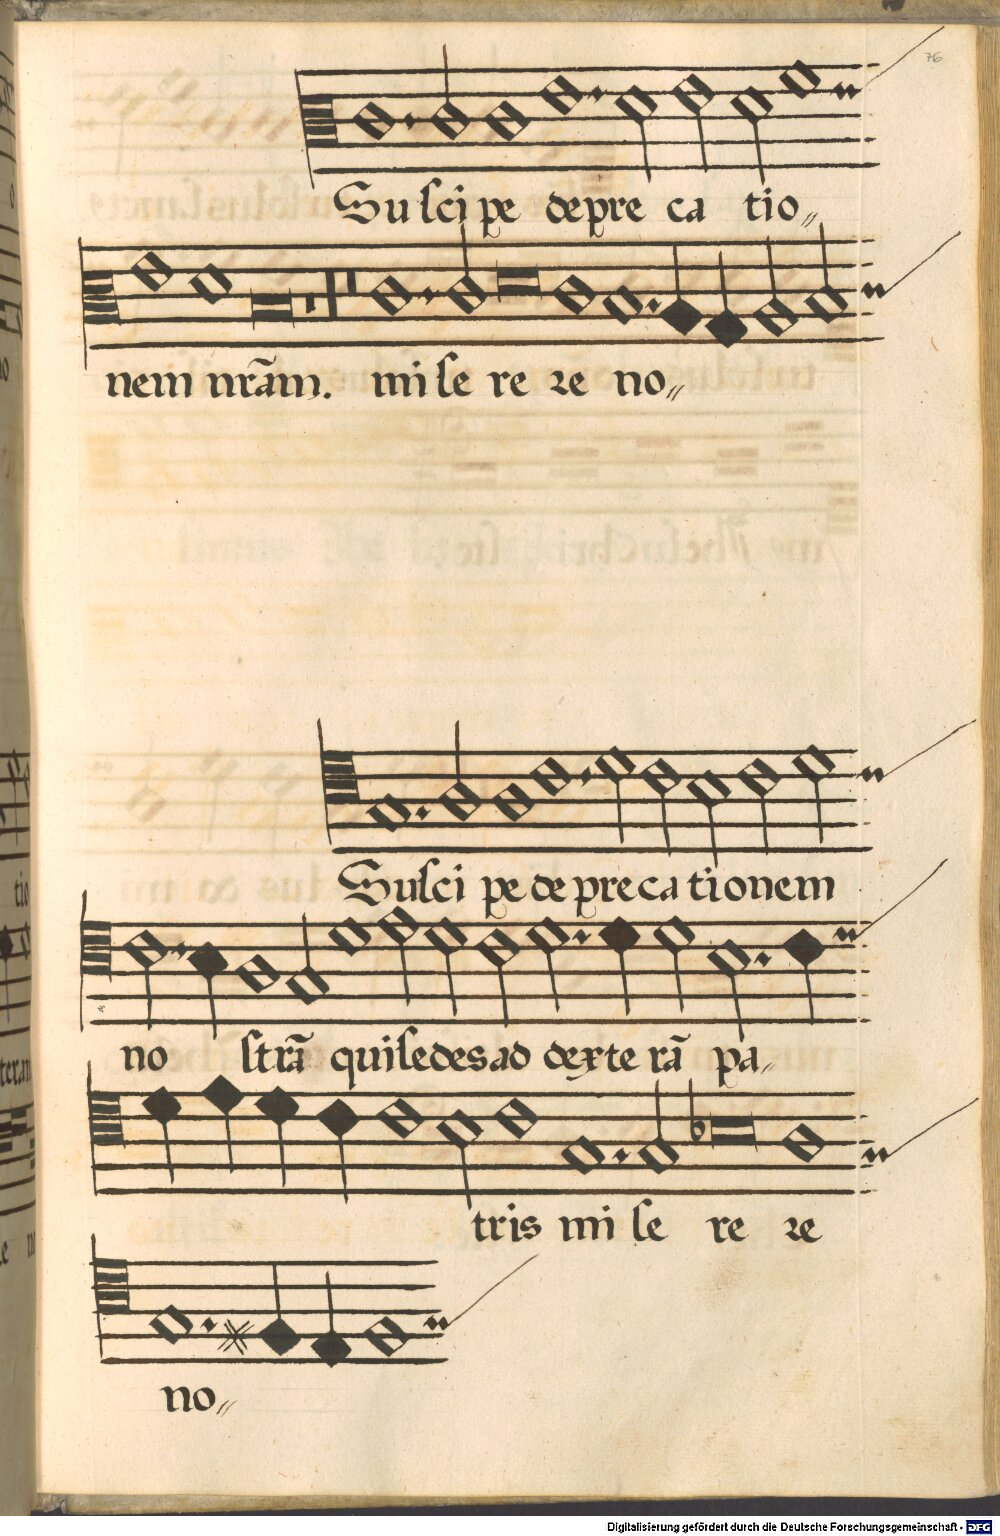 76
Susci pe depre ca tio〃
nem nr̃am. mi se re re no〃
Susci pe de preca tionem
no strã qui sedes ad dexte rã pa〃
tris mi se re re
no〃
Digitalisierung gefördert durch die Deutsche Forschungsgemeinschaft - DFG